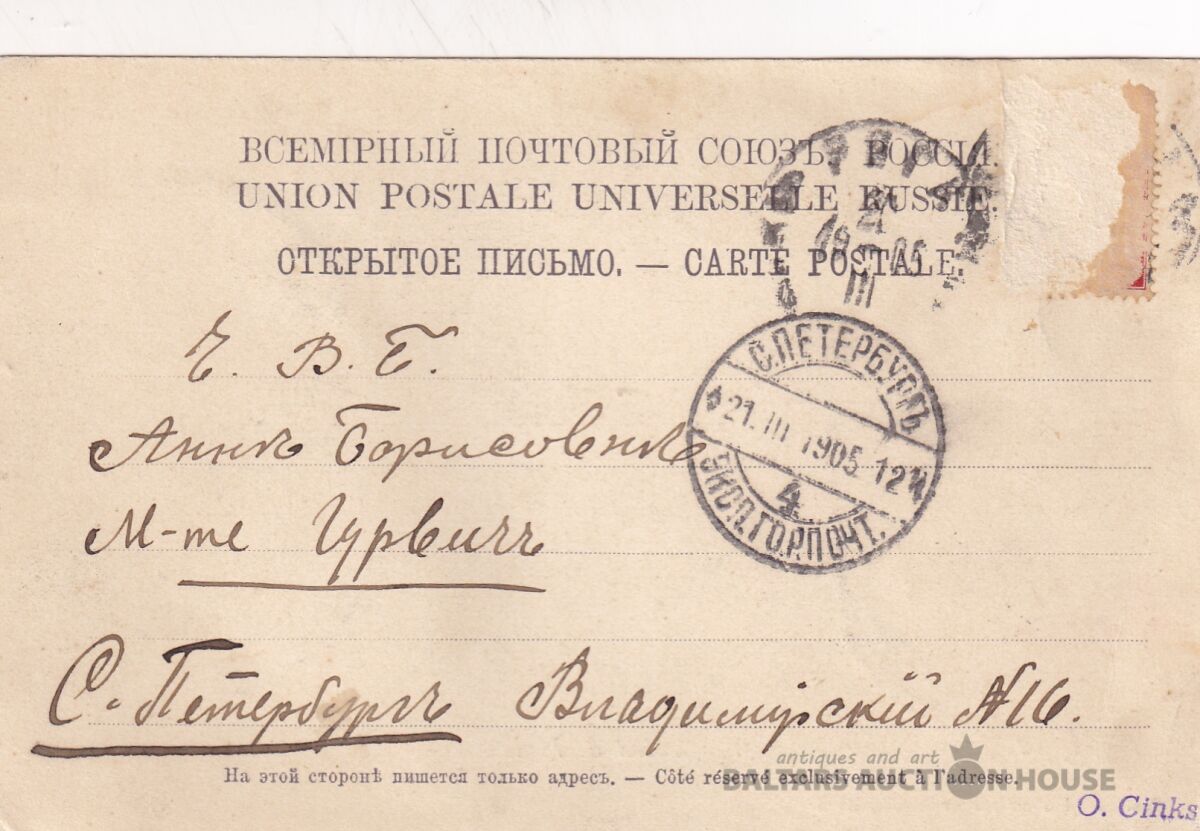 ВСЕМІРНЫЙ ПОЧТОВЫЙ СОЮЗЪ. РОССІЯ.
UNION POSTALE UNIVERSELLE RUSSIE.
ОТКРЫТОЕ ПИСЬМО. — CARTE POSTALE.
4
1905
III
Е. В. Б.
С.ПЕТЕРБУРГЪ
21.III 1905.12
4
ЭКСП.ГОР.ПОЧТ.
Аннѣ Борисовнѣ
М-me Гурвичъ
С. Петербургъ Владимірскій №16.
На этой сторонѣ пишется только адресъ. — Côté réservé exclusivement à l'adresse.
antiques and art
BALTARS AUCTION HOUSE
O. Cinks